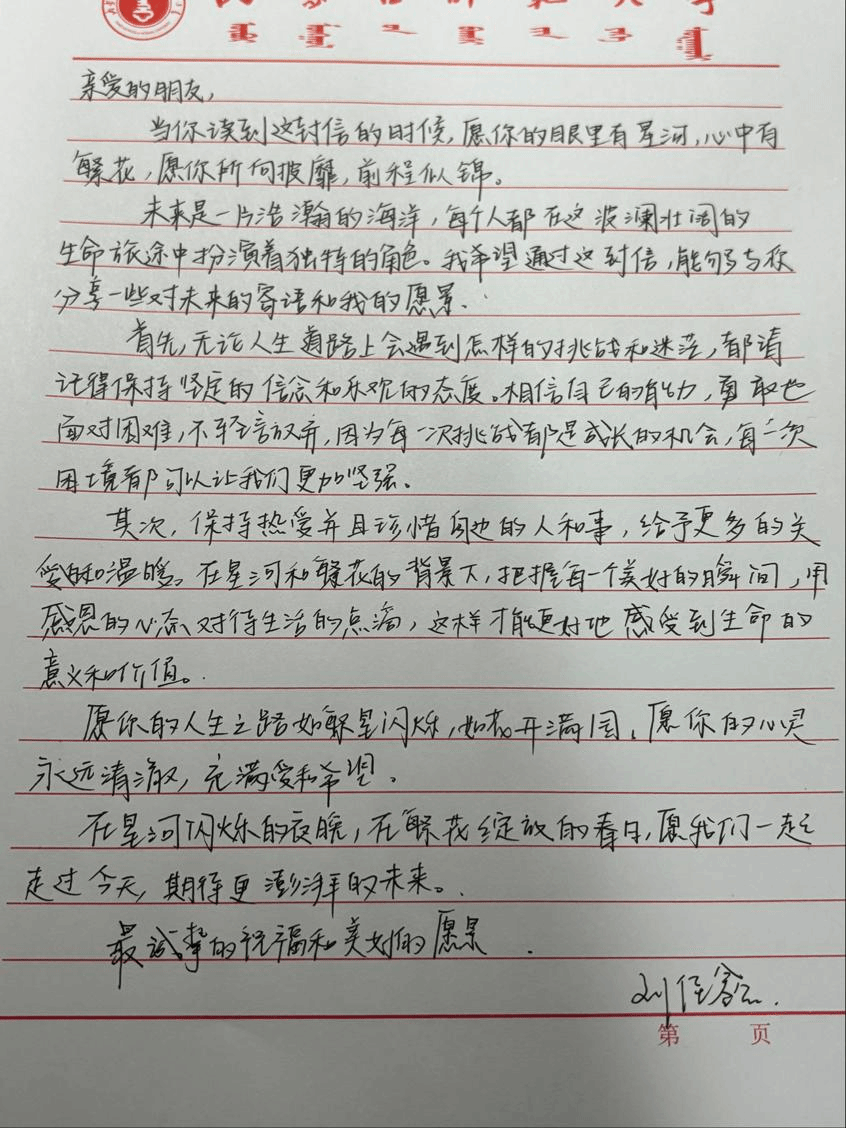 亲爱的朋友,
当你读到这封信的时候,愿你的眼里有星河,心中有
繁花,愿你所向披靡,前程似锦。
未来是一片浩瀚的海洋,每个人都在这波澜壮阔的
生命旅途中扮演着独特的角色。我希望通过这封信,能够与你
分享一些对未来的寄语和我的愿景.
首先,无论人生道路上会遇到怎样的挑战和迷茫,都请
记得保持坚定的信念和乐观的态度。相信自己的能力,勇敢地
面对困难,不轻言放弃,因为每一次挑战都是成长的机会,每一次
困境都可以让我们更加坚强。
其次,保持热爱并且珍惜身边的人和事,给予更多的关
爱和温暖。在星河和繁花的背景下,把握每一个美好的瞬间,用
感恩的心态对待生活的点滴,这样才能更好地感受到生命的
意义和价值。
愿你的人生之路如繁星闪烁,如花开满园,愿你的心灵
永远清澈,充满爱和希望.
在星河闪烁的夜晚,在繁花绽放的春日,愿我们一起
走过今天,期待更澎湃的未来。
最诚挚的祝福和美好的愿景.
第 页